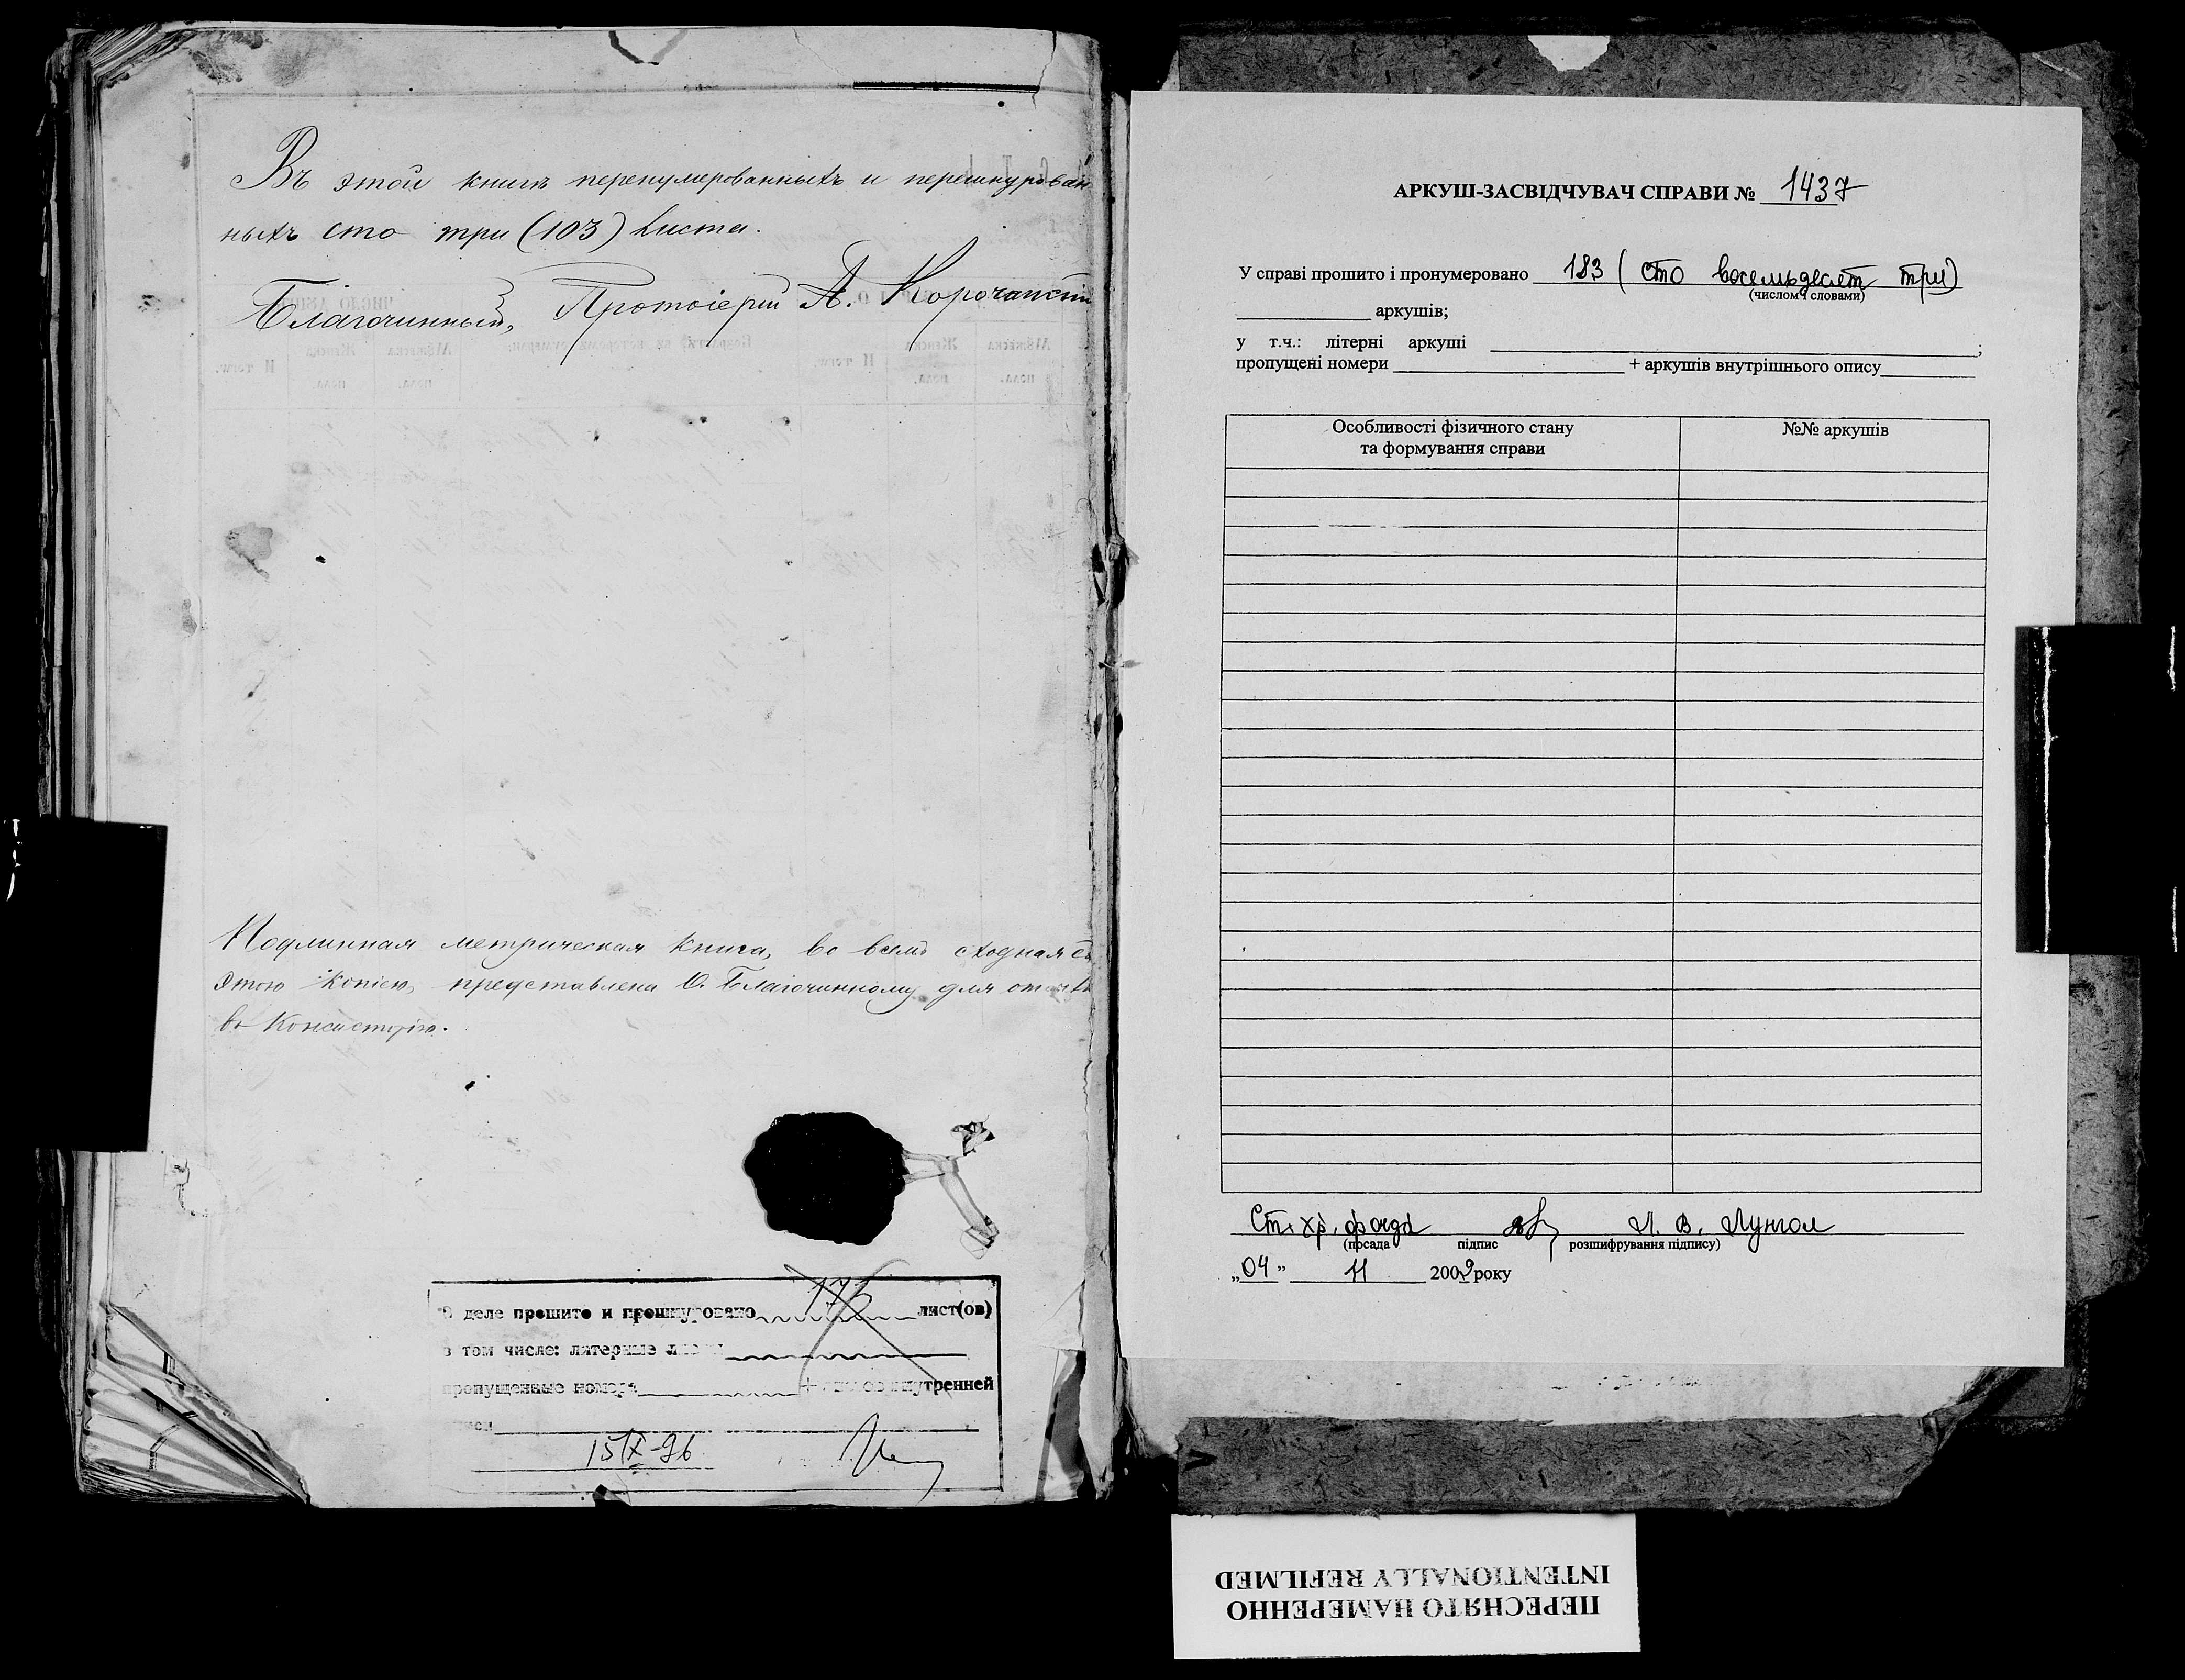 Въ этой книгѣ перенумерованныхъ и перешнурован
ныхъ сто три (103) листа.
Благочинный, Протоіерей А. Корочанскій
Подлинная метрическая книга, во всемъ сходная съ
этою копіею, представлена О. Благочинному для
въ Консисторію.
деле прошито и пронумеровано 175 лист(ов)
в том числе: литерные
пропущенные номера + внутренней
15/X-96
АРКУШ-ЗАСВІДЧУВАЧ СПРАВИ № 1437
У справі прошито і пронумеровано 183 ( сто восемьдесят три)
(числом і словами)
аркушів;
у т.ч.: літерні аркуші ;
пропущені номери + аркушів внутрішнього опису
Особливості фізичного стану №№ аркушів
та формування справи
Ст. хр. фонда Л. В. Лунгол
(посада підпис розшифрування підпису)
„04” 11 2009 року
ПЕРЕСНЯТО НАМЕРЕННО
INTENTIONALLY REFILMED